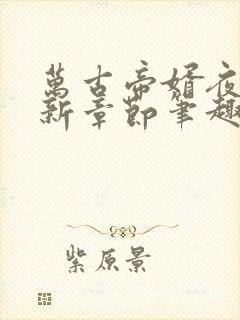 萬古帝婿夜
新章節筆趣
紫原景